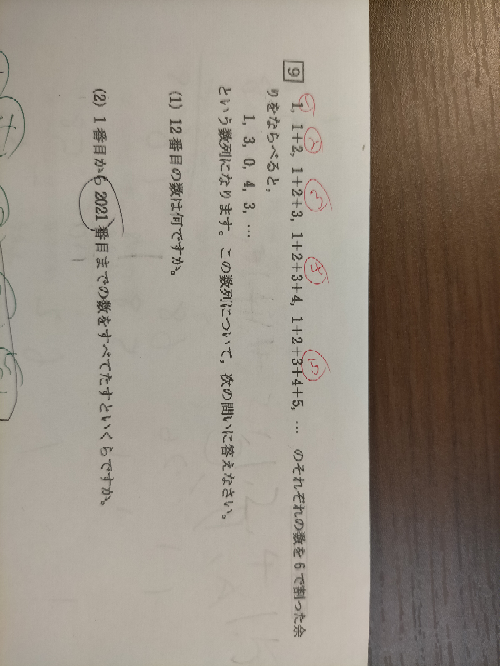 9
1, 1+2, 1+2+3, 1+2+3+4, 1+2+3+4+5, … のそれぞれの数を6で割った余
りをならべると,
1, 3, 0, 4, 3, …
という数列になります。この数列について, 次の問いに答えなさい。
(1) 12番目の数は何ですか。
(2) 1番目から2021番目までの数をすべてたすといくらですか。